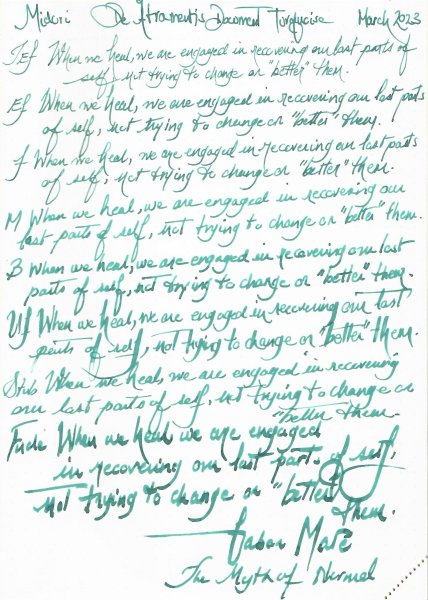 Midori De Atramentis Document Turquoise March 2023
J.EF When we heal, we are engaged in recovering our lost parts of
self, not trying to change or "better" them.
EF When we heal, we are engaged in recovering our lost parts
of self, not trying to change or "better" them.
F When we heal, we are engaged in recovering our lost parts
of self, not trying to change or "better" them.
M When we heal, we are engaged in recovering our
lost parts of self, not trying to change or "better" them.
B When we heal, we are engaged in recovering our lost
parts of self, not trying to change or "better" them.
UF When we heal, we are engaged in recovering our lost
parts of self, not trying to change or "better" them.
Stub When we heal, we are engaged in recovering
our lost parts of self, not trying to change or
"better them.
Fude When we heal we are engaged
in recovering our lost parts of self,
not trying to change or "better
them.
Gabor Maté
The Myth of Normal